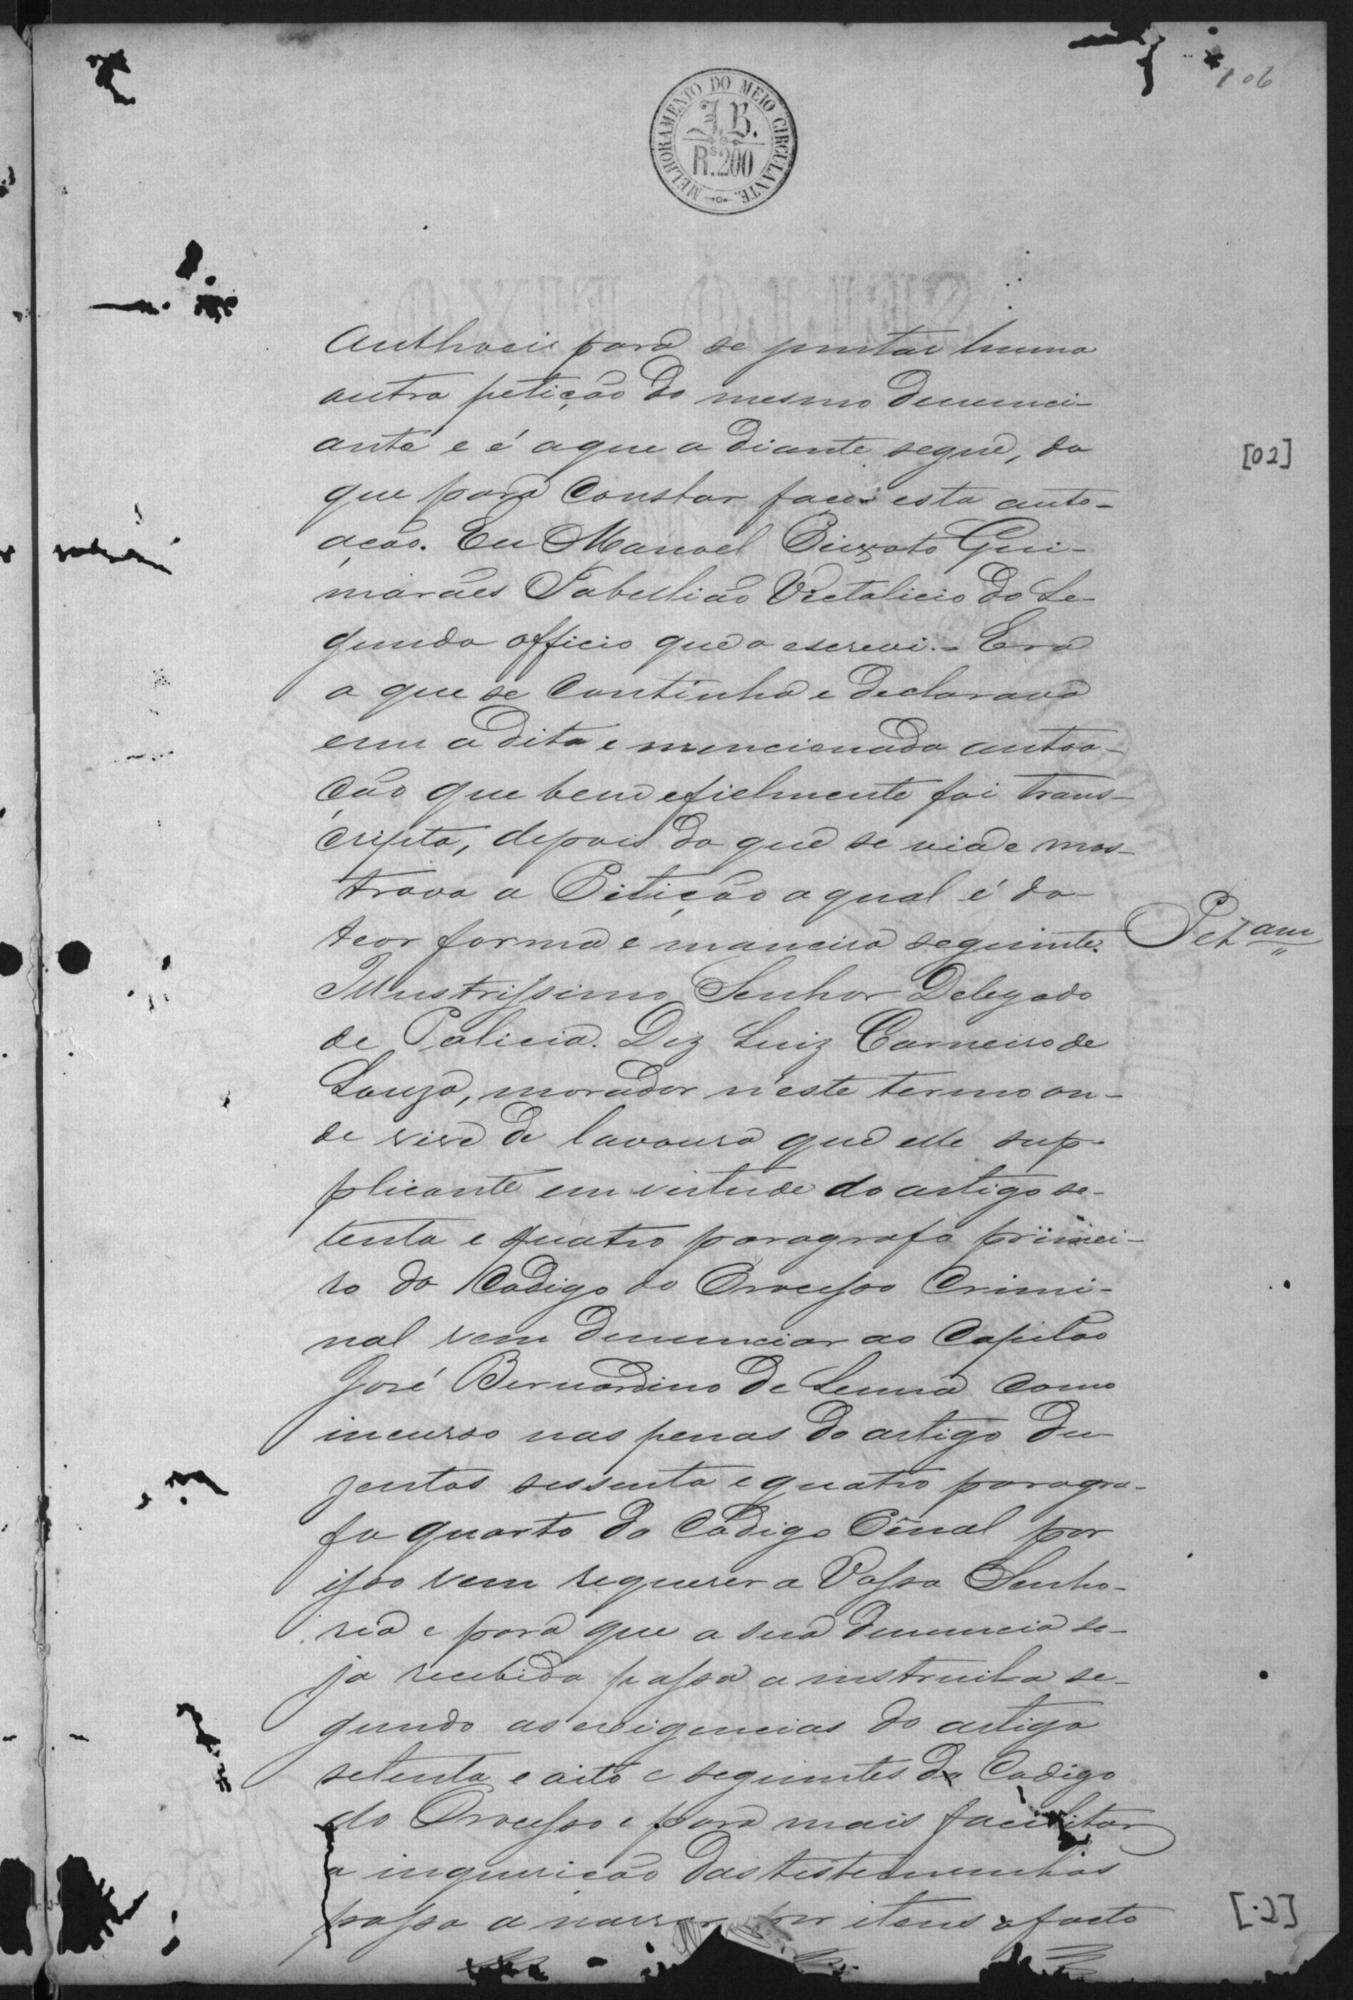 106
MELHORAMENTO DO MEIO CIRCULANTE.
J. B.
Rs. 200
Authuei para se juntar huma
outra petição do mesmo denunci-
ante e é a que a diante segue, do
que para constar faço esta auto-
ação. Eu Manoel Peixoto Gui-
marães Tabellião Vietalicio do Se-
gundo officio que o escrevi. - Era
o que se continha e declarava
em a dita e mencionada autoa-
ção que bem e fielmente foi trans-
cripta, depois do que se via e mos-
trava a Petição a qual é do
teor forma e maneira seguinte.
Petam
Illustrissimo Senhor Delegado
de Policia. Diz Luiz Carneiro de
Souza, morador n'este termo on-
de vive de lavoura que elle sup-
plicante em virtude do artigo se-
tenta e quatro paragrafo primei-
ro do Codigo do Processo Crimi-
nal vem denunciar ao Capitão
José Bernardino de Senna como
incurso nas penas do artigo du-
zentos sessenta e quatro paragra-
fo quarto do Codigo Penal por
isso vem requerer a Vossa Senho-
ria e para que a sua denuncia se-
ja recebida passa a instruila se-
gundo as exigencias do artigo
setenta e oito e seguintes do Codigo
do Processo e para mais facilitar
a inquerição das testemunhas
passa a narrar por itens o facto
[02]
[.2]